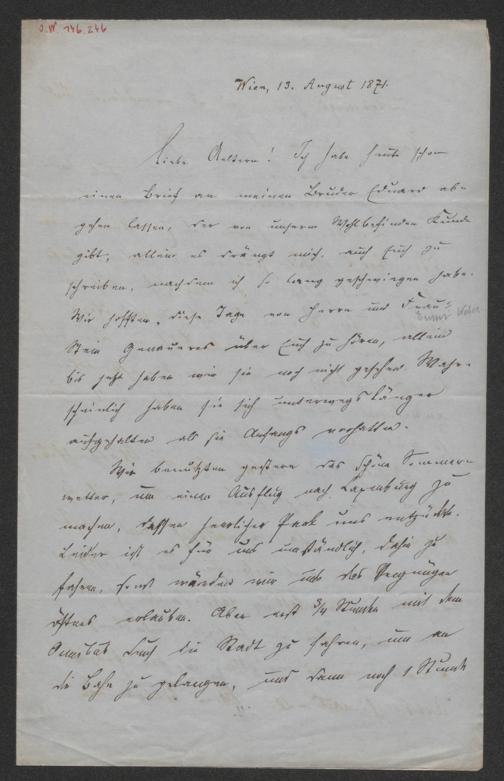 J.N. 146.246
Wien, 13. August 1871.
Liebe Aeltern! Ich habe heute schon
einen Brief an meinen Bruder Eduard ab-
gehen lassen, der von unserm Wohlbefinden Kunde
gibt, allein es drängt mich, auch Euch zu
schreiben, nachdem ich so lang geschwiegen habe.
Wir hofften, diese Tage von Herrn und Frau
Stein Genaueres über Euch zu hören, allein
bis jetzt haben wir sie noch nicht gesehen. Wahr-
scheinlich haben sie sich unterwegs länger
aufgehalten als sie Anfangs vorhatten.
Wir benutzten gestern das schöne Sommer-
wetter, um einen Ausflug nach Laxenburg zu
machen, dessen herrlicher Park uns entzückte.
Leider ist es für uns umständlich, dahin zu
fahren, sonst würden wir uns das Vergnügen
öfters erlauben. Aber erst 3/4 Stunden mit dem
Omnibus durch die Stadt zu fahren, um an
die Bahn zu gelangen, und dann noch 1 Stunde